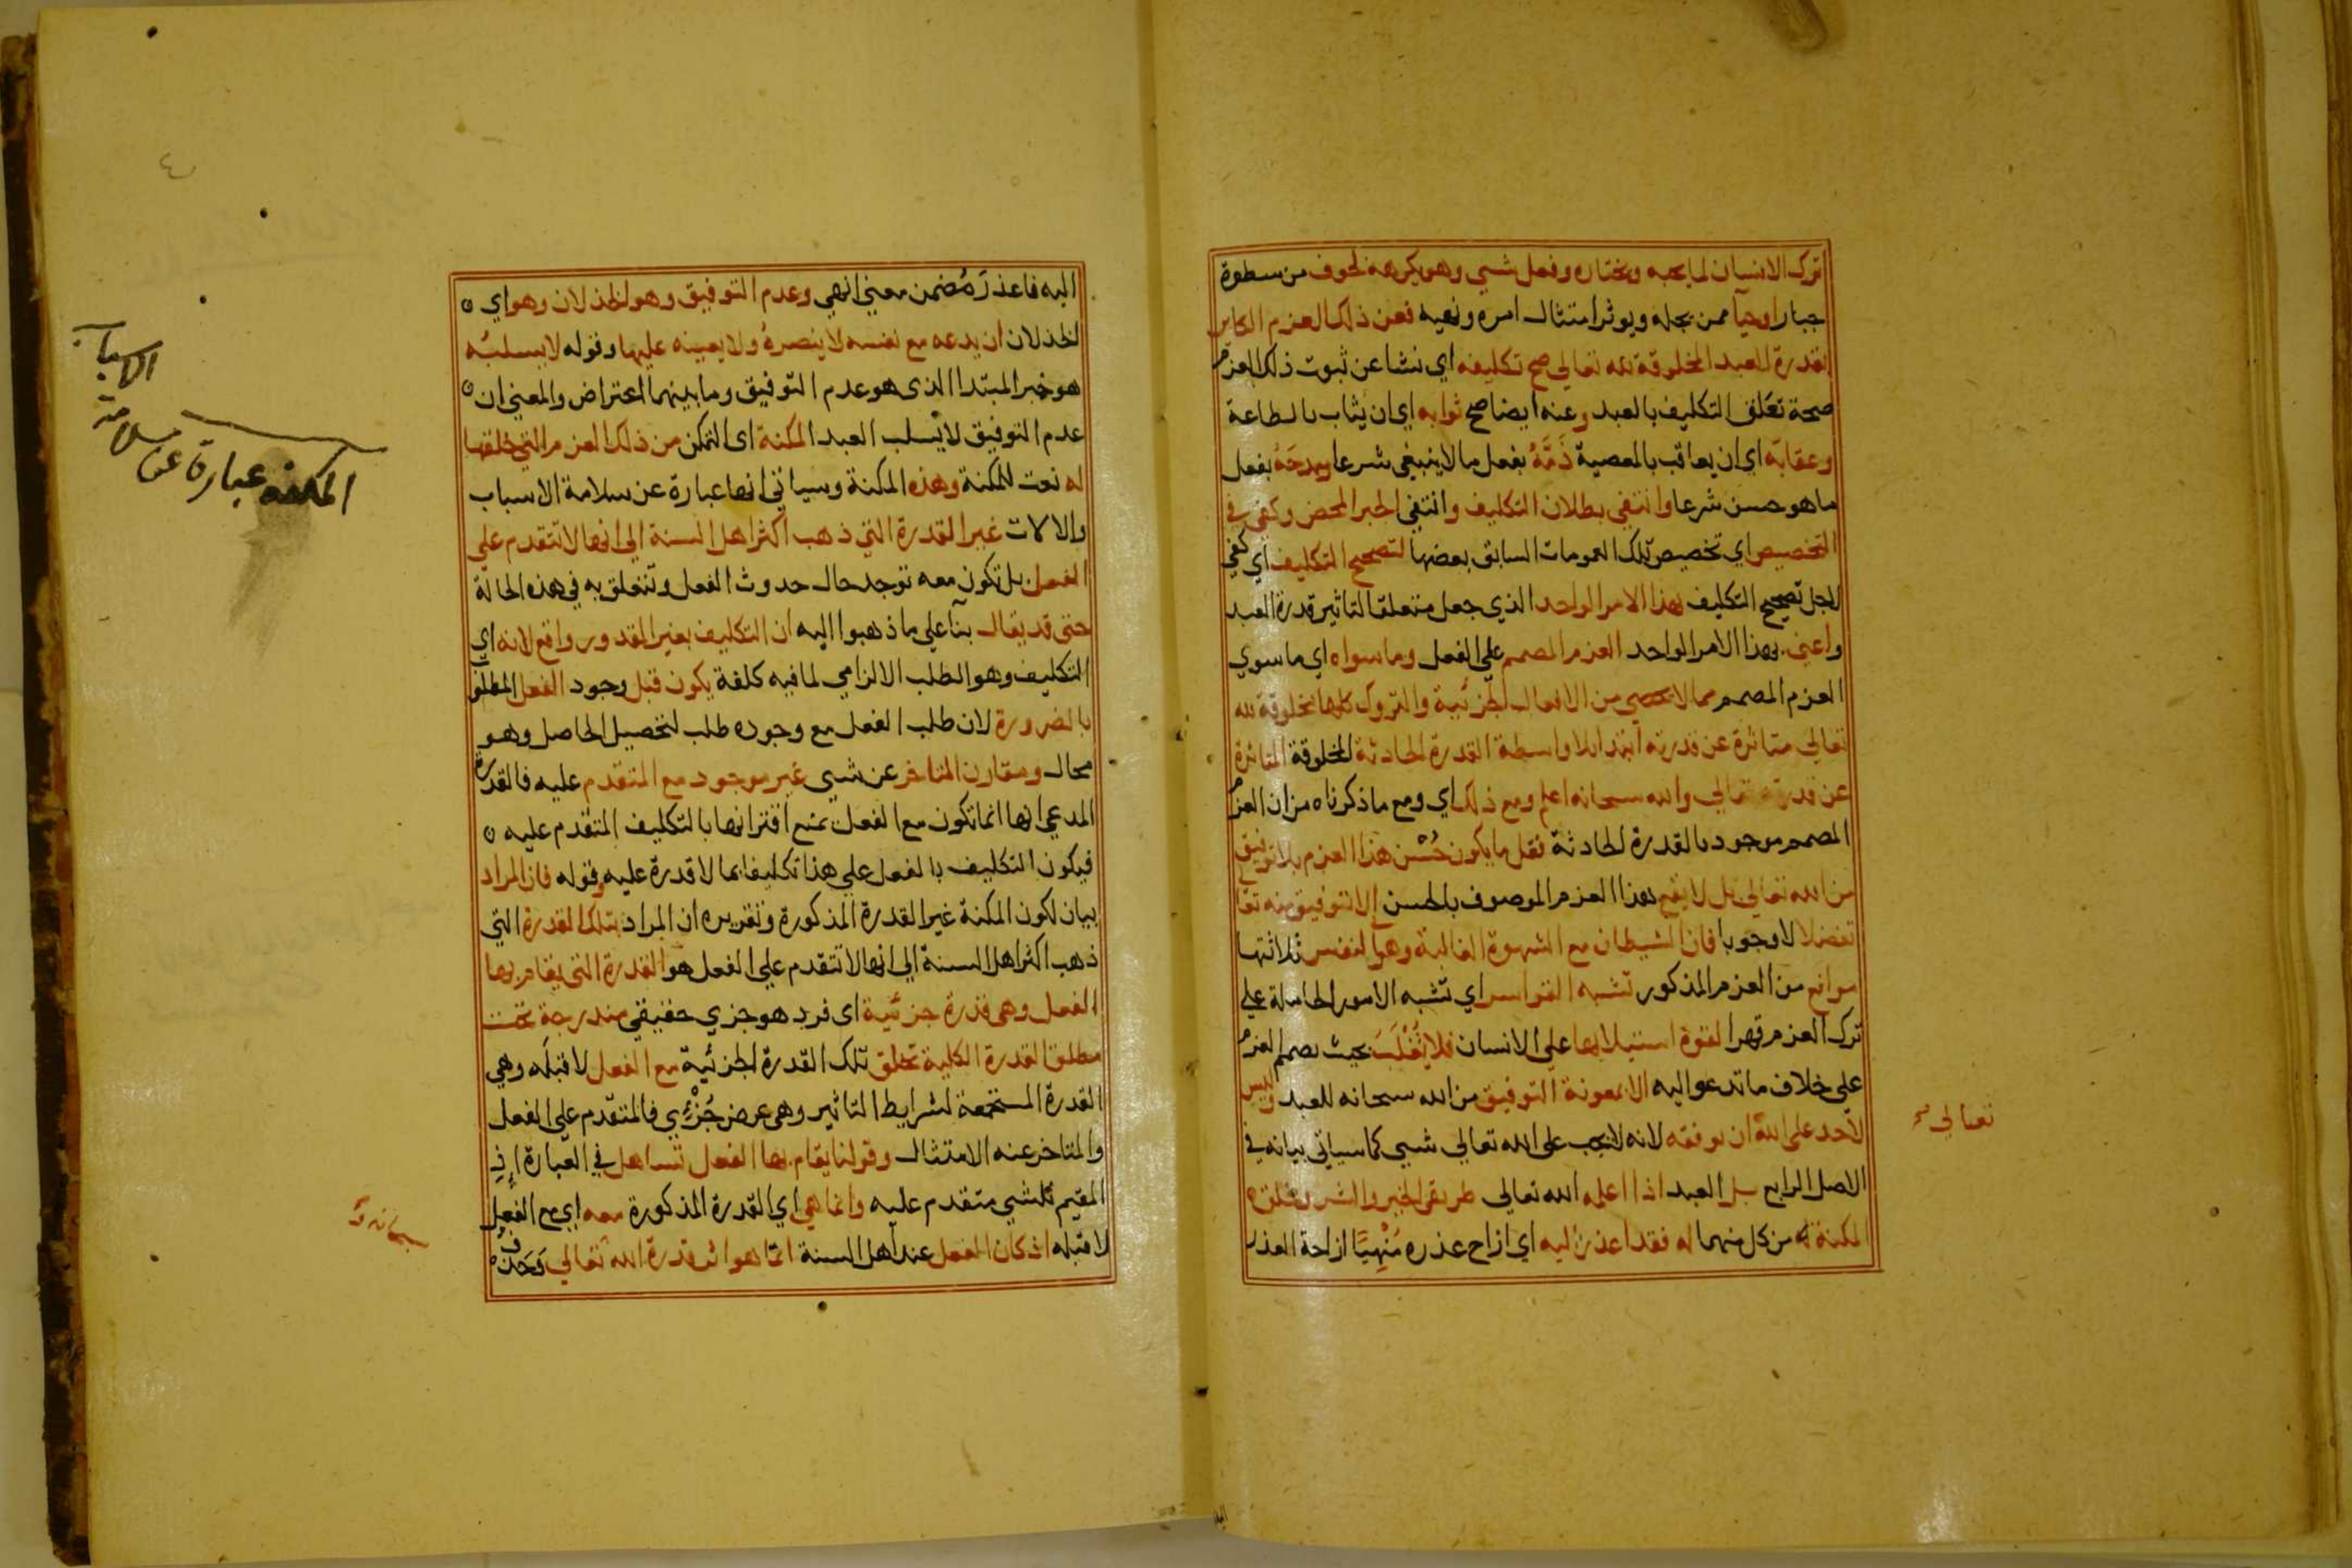 ترك الانسان لما يحبه ويختاره وفعل شيي وهو يكرهه لخوف من سطوة
جبار اوحيآ ممن يجله ويوثر امتثال امره ونهيه فعن ذلك العزم الكاين
بقدرة العبد المخلوقة لله تعالي صح تكليفه اي نشا عن ثبوت ذلك العزم
صحة تعلق التكليف بالعبد وعنه ايضا صح ثوابه اي ان يثاب بالطاعة
وعقابه اي ان يعاقب بالمعصية ذَمَّهُ بفعل ما لا ينبغي شرعا ومدحَهُ بفعل
ما هو حسن شرعا وانتفي بطلان التكليف وانتفي الجبر المحض وكفي في
التخصيص اي تخصيص تلك العمومات السابق بعضها لتصحيح التكليف اي كفي
لاجل تصحيح التكليف هذا الامر الواحد الذي جعل متعلقا لتاثير قدرة العبد
واعني بهذا الامر الواحد العزم المصمم علي الفعل وما سواه اي ما سوي
العزم المصمم مما لا يحصي من الافعال الجزئية والتروك كلها مخلوقة لله
تعالي متاثرة عن قدرته ابتدا بلا واسطة القدرة الحادثة المخلوقة المتاثرة
عن قدرته تعالي والله سبحانه اعلم ومع ذلك اي ومع ما ذكرناه من ان العزم
المصمم موجود بالقدرة الحادثة فقل ما يكون حُسْن هذا العزم بلا توفيق
من الله تعالي بل لا يقع هذا العزم الموصوف بالحسن إلا بتوفيق منه تعا
تفضلا لا وجوبا فان الشيطان مع الشهوة الغالبة وهوا لنفس ثلاثتها
موانع من العزم المذكور تشبه القواسر اي تشبه الامور الحاملة علي
ترك العزم قهرا لقوة استيلايها علي الانسان فلا يُغْلَبُ بحيث يصمم العزم
علي خلاف ما تدعو اليه الا بمعونة التوفيق من الله سبحانه للعبد وليس
لاحد علي الله ان يوفقه لانه لا يجب علي الله تعالي شيي كما سياتي بيانه في
الاصل الرابع بل العبد اذا اعلمه الله تعالي طريقي الخير والشر وخلق ه
المكنة من كل منهما له فقد اعذر اليه اي ازاح عذره مُنْهِيًا ازاحة العذر
تعالي صح
اليه فاعذرَ مُضمن معني انهي وعدم التوفيق وهو الخذلان وهو اي
الخذلان ان يدعه مع نفسه لا ينصرهُ ولا يعينه عليها وقوله لا يسلبُه
هو خبر المبتدا الذي هو عدم التوفيق وما بينهما اعتراض والمعني ان
عدم التوفيق لا يسلب العبد المكنة اي التمكن من ذلك العزم التي خلقها
له نعت للمكنة وهذه المكنة وسياتي انها عبارة عن سلامة الاسباب
والالات غير القدرة التي ذهب اكثر اهل السنة الي انها لا تتقدم علي
الفعل بل تكون معه توجد حال حدوث الفعل وتتعلق به في هذه الحالة
حتي قد يقال بنآ علي ما ذهبوا اليه ان التكليف بغير المقدور واقع لانه اي
التكليف وهو الطلب الالزامي لما فيه كلفة يكون قبل وجود الفعل المطلوب
بالضرورة لان طلب الفعل مع وجوده طلب لتحصيل الحاصل وهو
محال ومقارن المتاخر عن شيي غير موجود مع المتقدم عليه فالقدرة
المدعي انها انما تكون مع الفعل يمنع اقترانها بالتكليف المتقدم عليه
فيكون التكليف بالفعل علي هذا تكليفا بما لا قدرة عليه وقوله فان المراد
بيان لكون المكنة غير القدرة المذكورة وتقريره ان المراد بتلك القدرة التي
ذهب اكثر اهل السنة الي انها لا تتقدم علي الفعل هو القدرة التي يقام بها
الفعل وهي قدرة جزئية اي فرد هو جزي حقيقي مندرجة تحت
مطلق القدرة الكلية تخلق تلك القدرة الجزئية مع الفعل لا قبله وهي
القدرة المستجمعة لشرايط التاثير وهي عرض جُزْئِي فالمتقدم علي الفعل
والمتاخر عنه الامتثال وقولنا يقام بها الفعل تساهل في العبارة إذ
المقيم للشيي متقدم عليه وانما هي اي القدرة المذكورة معه اي مع الفعل
لا قبله اذ كان الفعل عند اهل السنة انما هو اثر قدرة الله تعالي وَحْدَهُ
سبحانه و
المكنة عبارة عن سلامة
الاسباب
٤